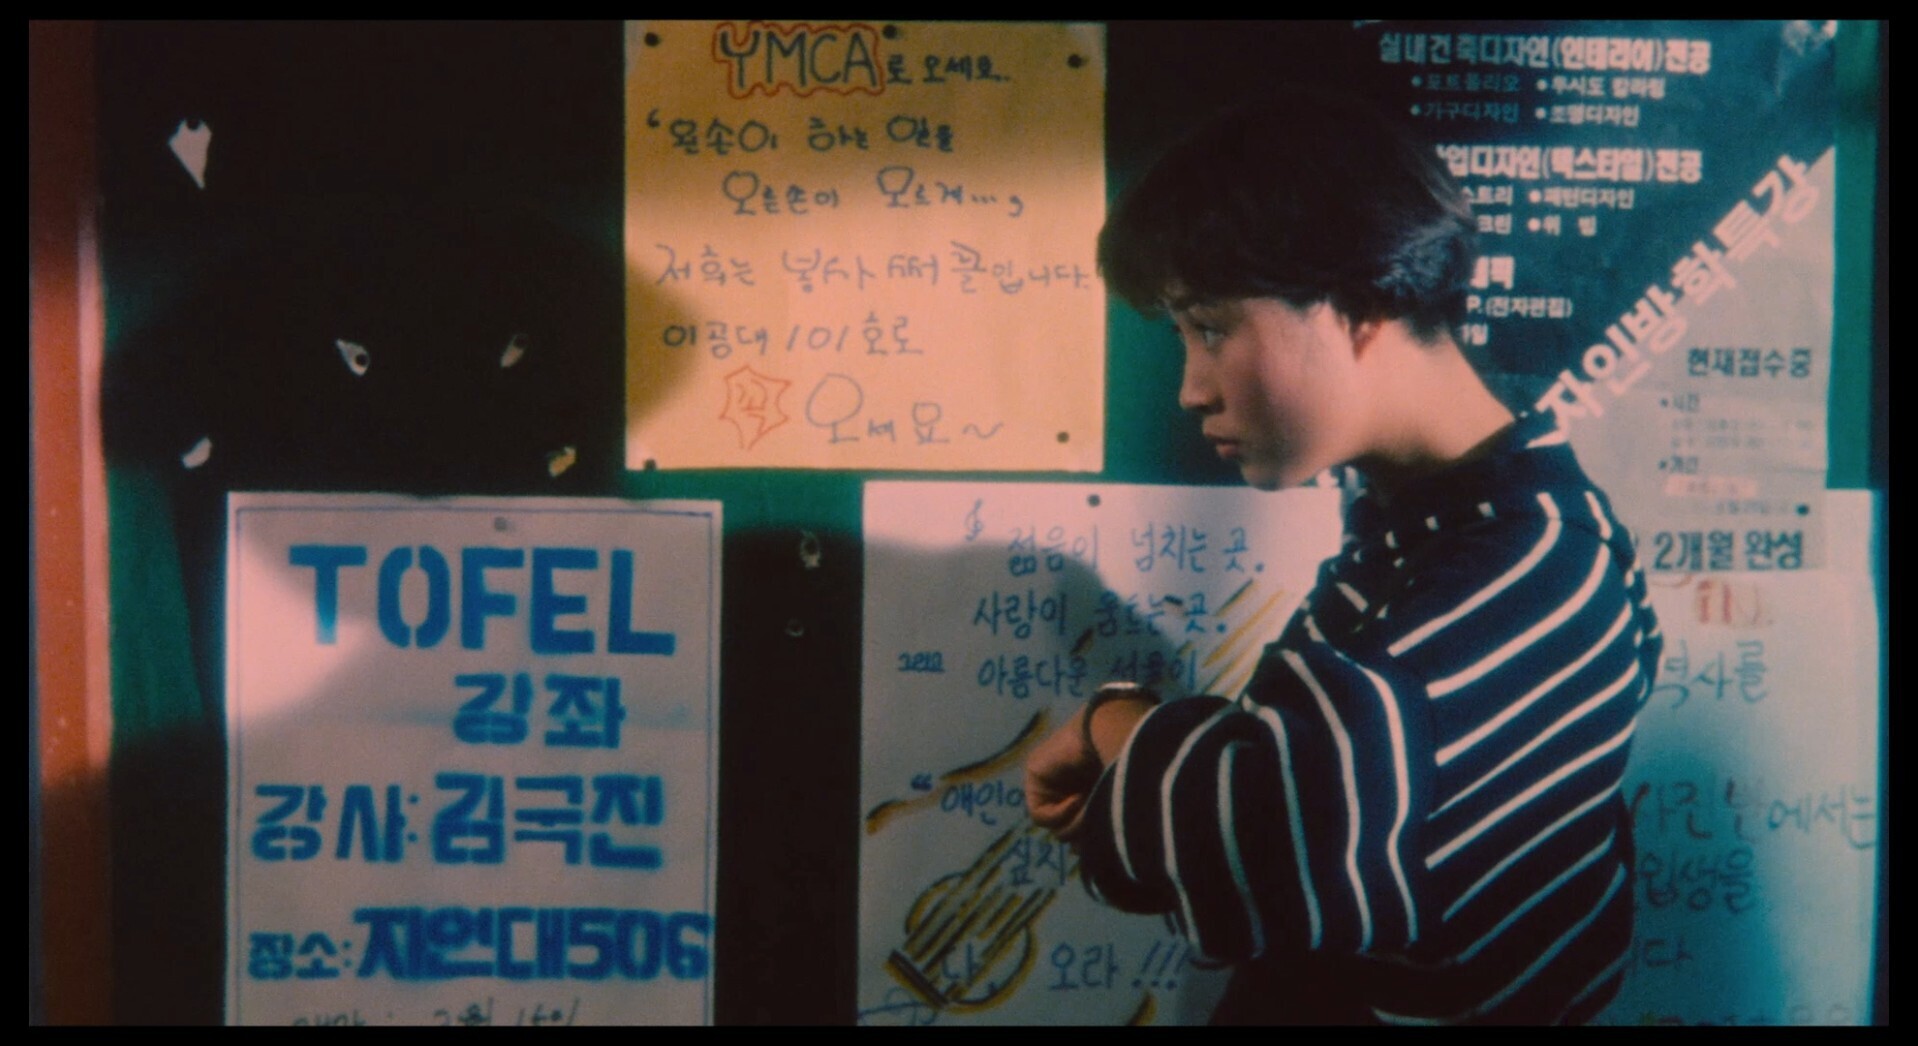 YMCA로 오세요.
“왼손이 하는 일을
오른손이 모르게...,
저희는 봉사 써클입니다.
이공대 101호로
꼭 오세요~
실내건축디자인(인테리어)전공
•포트폴리오 •투시도 칼라링
•가구디자인 •조명디자인
업디자인(텍스타일)전공
스트리 •패턴디자인
크린 •위 빙
P.(전자편집)
자인방학특강
현재접수중
•시간
•기간
2개월 완성
TOFEL
강좌
강사:김국진
장소:자연대506
젊음이 넘치는 곳.
사랑이 움트는 곳.
그리고 아름다운 선율이
“애인이
싶지
오라!!!
역사를
에서는
입생을